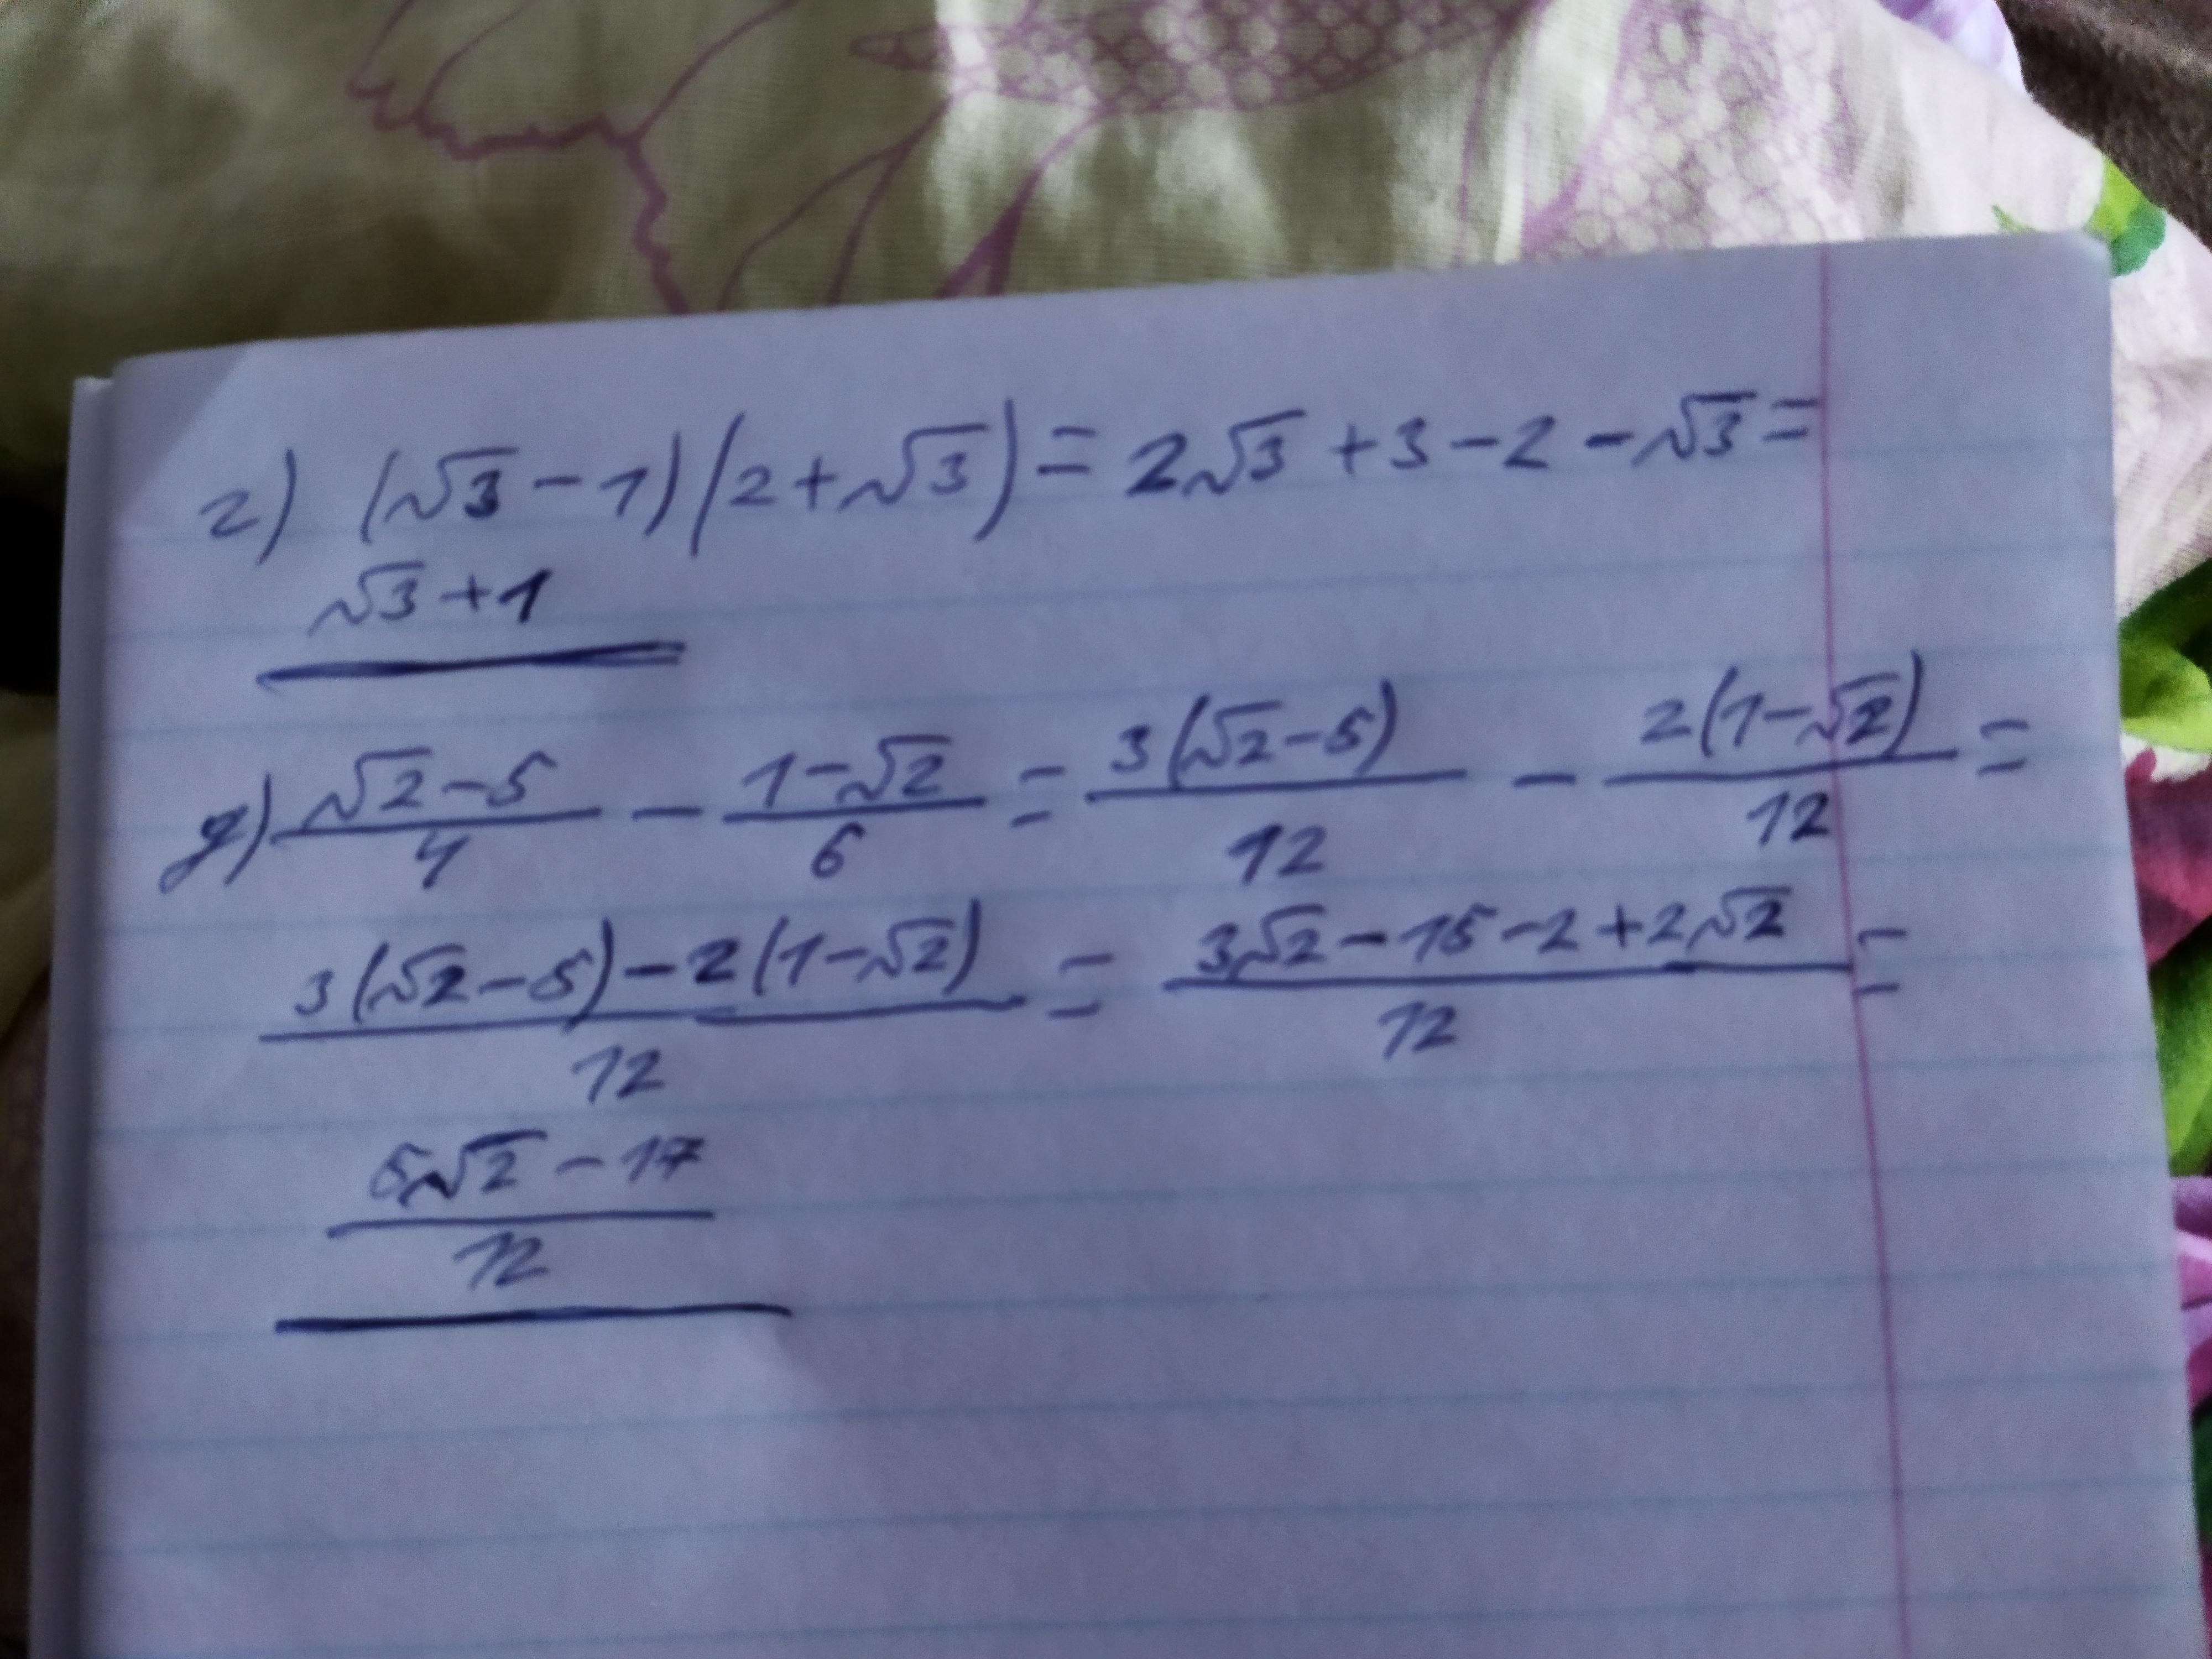 г) (√3 - 1)(2 + √3) = 2√3 + 3 - 2 - √3 =
√3 + 1
д) (√2 - 5)/4 - (1 - √2)/6 = 3(√2 - 5)/12 - 2(1 - √2)/12 =
(3(√2 - 5) - 2(1 - √2))/12 = (3√2 - 15 - 2 + 2√2)/12 =
(5√2 - 17)/12